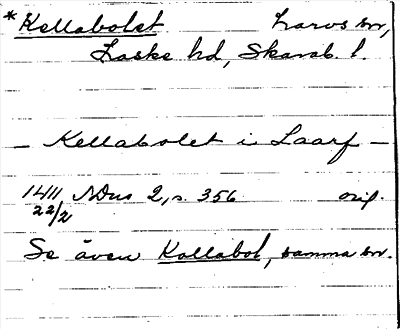 *Kellabolet Larvs sn,
Laske hd, Skarab. l.
– Kellabolet i Laarf –
1411 22/2 SDns 2, s. 356 orig.
Se även Kallabol, samma sn.